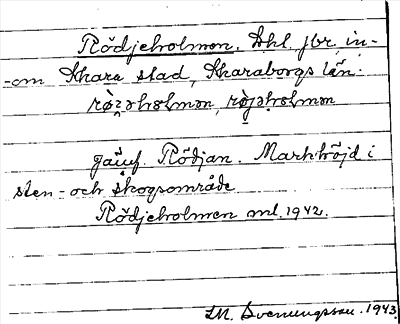 Rödjeholmen. Lhl. jbr. in-
-om Skara stad, Skaraborgs län.
rø̀ʒəhɷlmən, rø̀jəhɷlmən
jämf. Rödjan. Markhöjd i
sten- och skogsområde
Rödjeholmen ml. 1942.
M. Svenungsson. 1943.